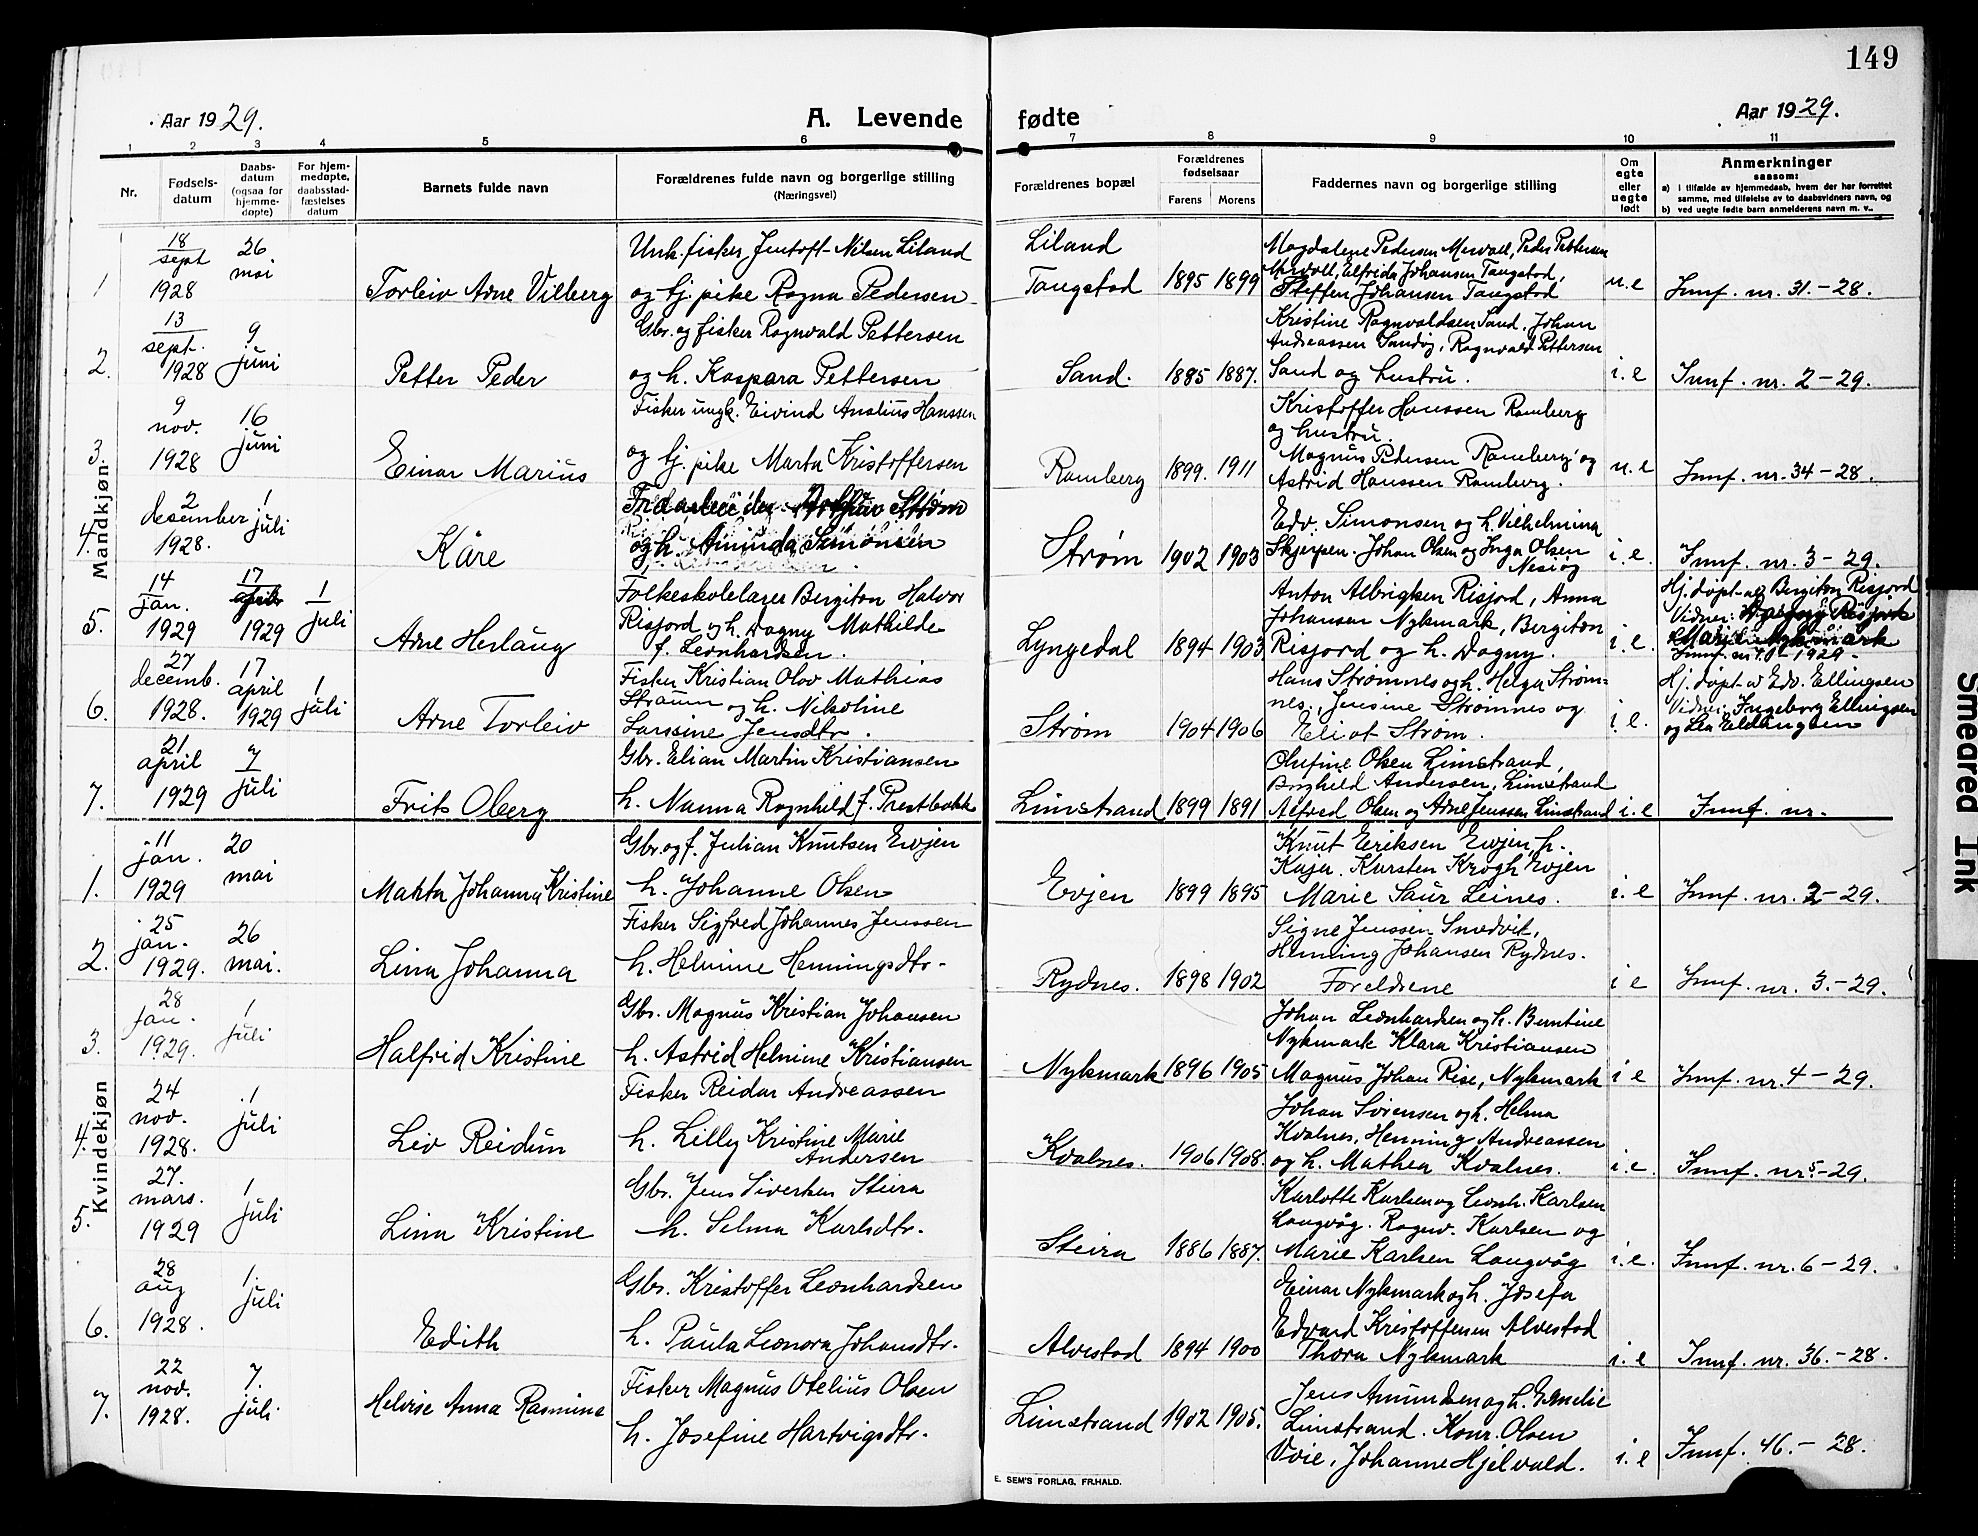 149
Aar 1929.
A. Levende fødte
Aar 1929.
1 2 3 4 5 6 7 8 9 10 11
Nr.
Fødsels-
datum
Daabs-
datum
(ogsaa for
hjemme-
døpte)
For hjem-
medøpte,
daabsstad-
fæstelses
datum
Barnets fulde navn
Forældrenes fulde navn og borgerlige stilling
(Næringsvei)
Forældrenes bopæl
Forældrenes
fødselsaar
Farens Morens
Faddernes navn og borgerlige stilling
Om
egte
eller
uegte
født
Anmerkninger
saasom:
a) i tilfælde av hjemmedaab, hvem der har forrettet
samme, med tilføielse av to daabsvidners navn, og
b) ved uegte født barn anmelderens navn m. v..
Mandkjøn
1
18
sept
1928
26
mai
Torleiv Arne Vilberg
Unk. fisker Jentoft Nilsen Liland
og tj. pike Ragna Pedersen
Liland
Tangstad
1895 1899
Magdalene Pedersen Mervoll, Peder Pettersen
Mervoll, Elfrida Johansen Tangstad,
Steffen Johansen Tangstad
u.e
Innf. nr. 31.-28.
2.
13
sept.
1928
9
juni
Petter Peder
Gbr. og fisker Ragnvald Pettersen
og h. Kaspara Pettersen
Sand.
1885 1887.
Kristine Ragnvaldsen Sand, Johan
Andreassen Sandøy, Ragnvald Pettersen
Sand og hustru.
i.e
Innf. nr. 2-29.
3.
9
nov.
1928
16
juni
Einar Marius
Fisker ungk. Eivind Anslius Hanssen
og tj. pike Marta Kristoffersen
Ramberg
1899. 1911
Kristoffer Hanssen Ramberg
og hustru.
Magnus Pedersen Ramberg og
Astrid Hanssen Ramberg.
u.e
Innf. nr. 34-28.
4.
2
desember
1928.
1
juli
Kåre
Strøm
og h. Aminda Simonsen
Strøm
1902 1903
Edv. Simonsen og h. Vilhelmina
Skjerpen. Johan Olsen og Inga Olsen
Nesjøg
i.e.
Innf. nr. 3-29.
5.
14
jan.
1929
17
april
1929
1
juli
Arne Herlaug
Folkeskolelærer Bergiton Halvor
Risjord og h. Dagny Mathilde
f. Leonhardsen.
Lyngedal
1894 1903
Anton Albrigtsen Risjord, Anna
Johansen Nykmark, Bergiton
Risjord og h. Dagny.
i.e.
Hj. døpt av Bergiton Risjord
Vidner: Dagny Risjord
Marie Nykmark
1929
6.
27
decemb.
1928.
17
april
1929
1
juli
Arne Torleiv
Fisker Kristian Olav Mathias
Straum og h. Nikoline
Larsine Jensdtr.
Strøm
1904 1906
Hans Strømnes og h. Helga Strøm-
nes., Jensine Strømnes og
Eliot Strøm.
i.e.
Hj. døpt av Edv. Ellingsen
Vidner: Ingeborg Ellingsen
og Lea Ellingsen
7.
21
april
1929
7
juli
Frits Oberg
Gbr. Elian Martin Kristiansen
h. Nanna Ragnhild f. Prestbakk
Limstrand
1899 1891
Olufine Olsen Limstrand,
Borghild Andersen, Limstrand
Alfred Olsen og Arne Jenssen Limstrand
i.e
Innf. nr.
Kvindekjøn
1.
11
jan.
1929
20
mai
Makta Johanna Kristine
Gbr. og f. Julian Knutsen Evjen
h. Johanne Olsen
Evjen
1899 1895
Knut Eriksen Evjen, h.
Kaja. Karsten Krogh Evjen
Marie Saur Leines.
i.e
Innf. nr. 2-29.
2.
25
jan.
1929.
26
mai.
Lina Johanna
Fisker Sigfred Johannes Jenssen
h. Helmine Henningsdtr.
Rydnes.
1898 1902
Signe Jenssen Smedvik,
Hemling Johansen Rydnes.
Foreldrene
i e
Innf. nr. 3.-29.
3.
28
jan.
1929.
1
juli
Halfrid Kristine
Gbr. Magnus Kristian Johansen
h. Astrid Helmine Kristiansen
Nykmark
1896 1905
Johan Leonhardsen og h. Berntine
Nykmark Klara Kristiansen
Magnus Johan Rise, Nykmark
i e
Innf. nr. 4-29.
4.
24
nov.
1928.
1
juli
Liv Reidun
Fisker Reidar Andreassen
h. Lilly Kristine Marie
Andersen
Kvalnes.
1906 1908.
Johan Sørensen og h. Helma
Kvalnes, Henning Andreassen
og h. Mathea Kvalnes.
i.e.
Innf. nr 5-29.
5.
27.
mars.
1929
1
juli
Lina Kristine
Gbr. Jens Sivertsen Steira
h. Selma Karlsdtr.
Steira
1886 1887.
Karlotte Karlsen og Leonh. Karlsen
Langvåg. Ragnv. Karlsen og
Marie Karlsen Langvåg
i.e.
Innf. nr. 6-29.
6.
28
aug
1928.
1
juli
Edith
Gbr. Kristoffer Leonhardsen
h. Paula Leonora Johansdtr.
Alvestad
1894 1900
Einar Nykmark og h. Josefa
Edvard Kristoffersen Alvestad
Thora Nykmark
i.e
Innf. nr. 36.-28.
7.
22
nov.
1928.
7.
juli
Helvise Anna Rasmine
Fisker Magnus Otelius Olsen
h. Josefine Hartvigsdtr.
Limstrand
1902 1905.
Jens Amundsen og h. Emelie
Limstrand. Konr. Olsen
Voie, Johanne Hjelvald.
i.e
Innf. 46.-28.
E. SEM'S FORLAG. FR.HALD.
Smeared Ink